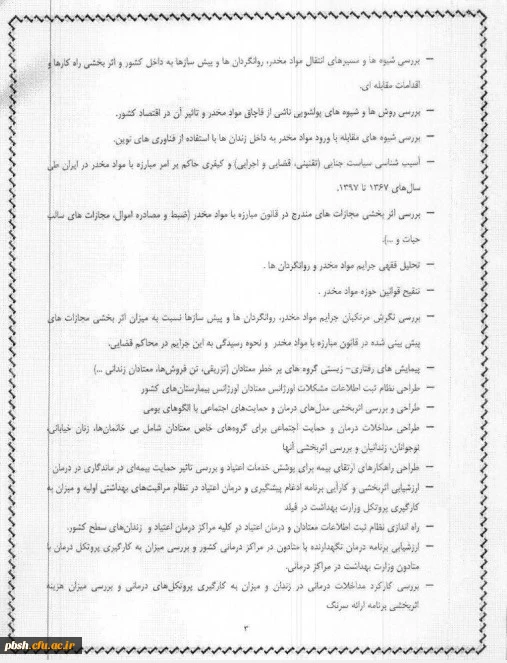 – بررسی شیوه ها و مسیرهای انتقال مواد مخدر، روانگردان ها و پیش سازها به داخل کشور و اثر بخشی راه کارها و
اقدامات مقابله ای.
– بررسی روش ها و شیوه های پولشویی ناشی از قاچاق مواد مخدر و تاثیر آن در اقتصاد کشور.
– بررسی شیوه های مقابله با ورود مواد مخدر به داخل زندان ها با استفاده از فناوری های نوین.
– آسیب شناسی سیاست جنایی (تقنینی، قضایی و اجرایی) و کیفری حاکم بر امر مبارزه با مواد مخدر در ایران طی
سال‌های ۱۳۶۷ تا ۱۳۹۷.
– بررسی اثر بخشی مجازات های مندرج در قانون مبارزه با مواد مخدر (ضبط و مصادره اموال، مجازات های سالب
حیات و ...).
– تحلیل فقهی جرایم مواد مخدر و روانگردان ها .
– تنقیح قوانین حوزه مواد مخدر .
– بررسی نگرش مرتکبان جرایم مواد مخدر، روانگردان ها و پیش سازها نسبت به میزان اثر بخشی مجازات های
پیش بینی شده در قانون مبارزه با مواد مخدر و نحوه رسیدگی به این جرایم در محاکم قضایی.
– پیمایش های رفتاری- زیستی گروه های پر خطر معتادان (تزریقی، تن فروش‌ها، معتادان زندانی ...)
– طراحی نظام ثبت اطلاعات مشکلات اورژانس معتادان اورژانس بیمارستان‌های کشور
– طراحی و بررسی اثربخشی مدل‌های درمان و حمایت‌های اجتماعی با الگوهای بومی
– طراحی مداخلات درمان و حمایت اجتماعی برای گروه‌های خاص معتادان شامل بی خانمان‌ها، زنان خیابانی،
نوجوانان، زندانیان و بررسی اثربخشی آنها
– طراحی راهکارهای ارتقای بیمه برای پوشش خدمات اعتیاد و بررسی تاثیر حمایت بیمه‌ای در ماندگاری در درمان
– ارزشیابی اثربخشی و کارآیی برنامه ادغام پیشگیری و درمان اعتیاد در نظام مراقبت‌های بهداشتی اولیه و میزان به
کارگیری پروتکل وزارت بهداشت در فیلد
– راه اندازی نظام ثبت اطلاعات معتادان و درمان اعتیاد در کلیه مراکز درمان اعتیاد و زندان‌های سطح کشور.
– ارزشیابی برنامه درمان نگهدارنده با متادون در مراکز درمانی کشور و بررسی میزان به کارگیری پروتکل درمان با
متادون وزارت بهداشت در مراکز درمانی.
– بررسی کارکرد مداخلات درمانی در زندان و میزان به کارگیری پروتکل‌های درمانی و بررسی میزان هزینه
اثربخشی برنامه ارائه سرنگ
۳
pbsh.cfu.ac.ir